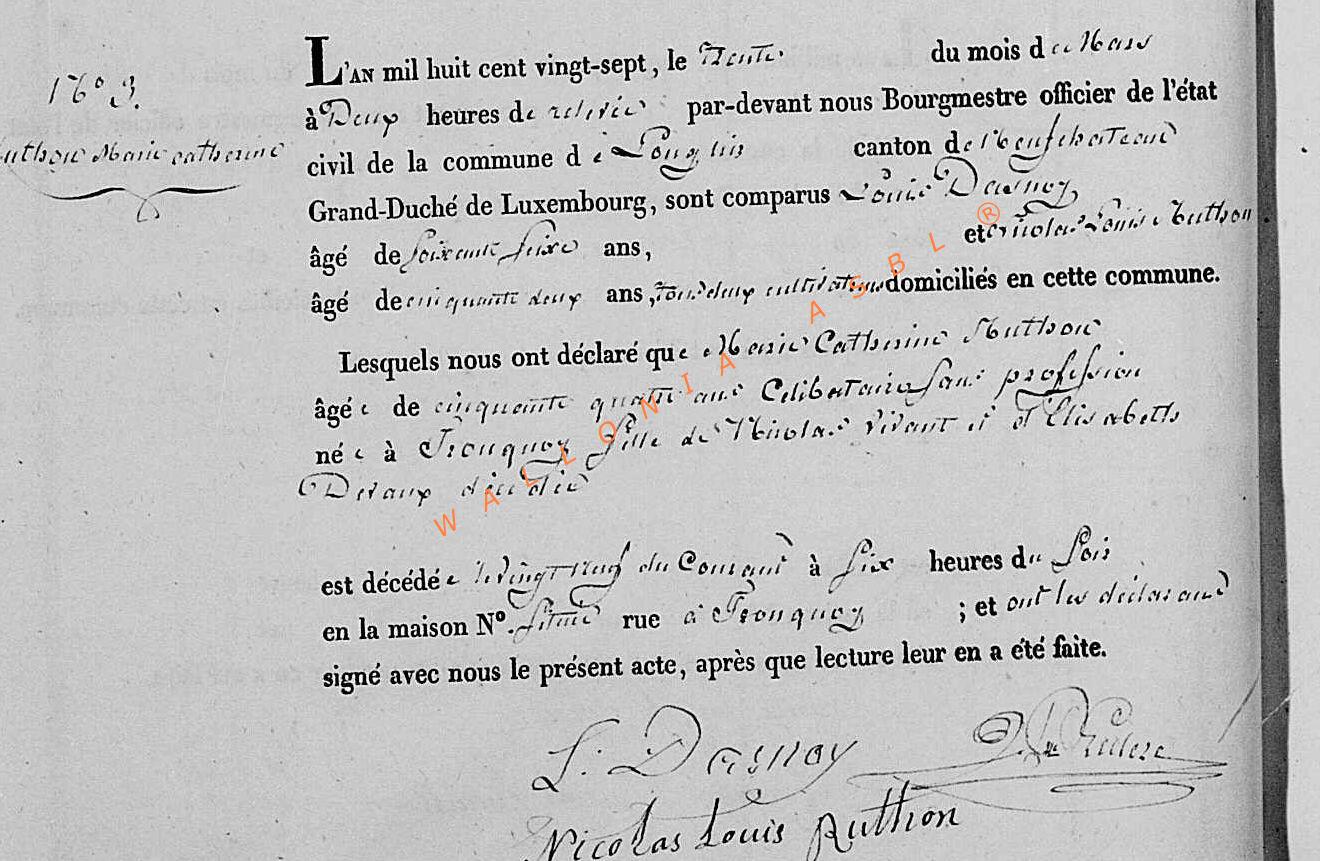 N° 3.
Ruthon Marie catherine
L'AN mil huit cent vingt-sept, le Trente du mois de Mars
à Deux heures de relevée par-devant nous Bourgmestre officier de l'état
civil de la commune de Longlier canton de Neufchateau
Grand-Duché de Luxembourg, sont comparus Louis Dasnoy
âgé de soixante seize ans, et Nicolas Louis Ruthon
âgé de cinquante deux ans, tous deux cultivateurs domiciliés en cette commune.
Lesquels nous ont déclaré que Marie Catherine Ruthon
âgée de cinquante quatre ans Celibataire sans profession
née à Tronquoy fille de Nicolas vivant et d'Elisabeth
Devaux décédée
est décédée le vingt neuf du Courant à six heures du soir
en la maison N°. située rue à Tronquoy ; et ont les déclarans
signé avec nous le présent acte, après que lecture leur en a été faite.
L. Dasnoy
Nicolas Louis Ruthon
WALLONIA ASBL ®